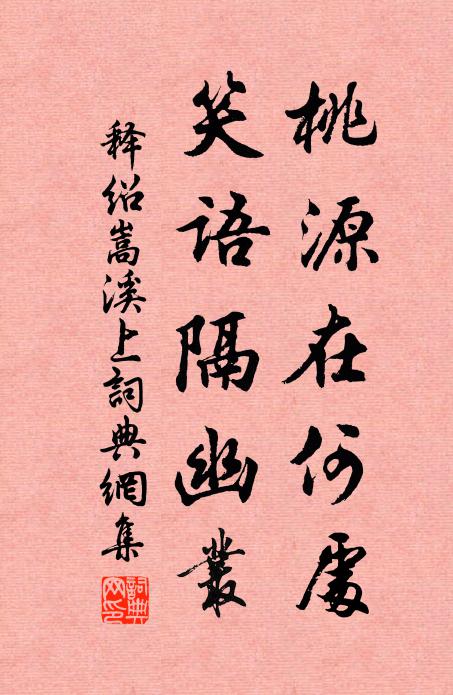 桃源在何處
笑語隔幽叢
释绍嵩溪上詞典網集
詞典網印